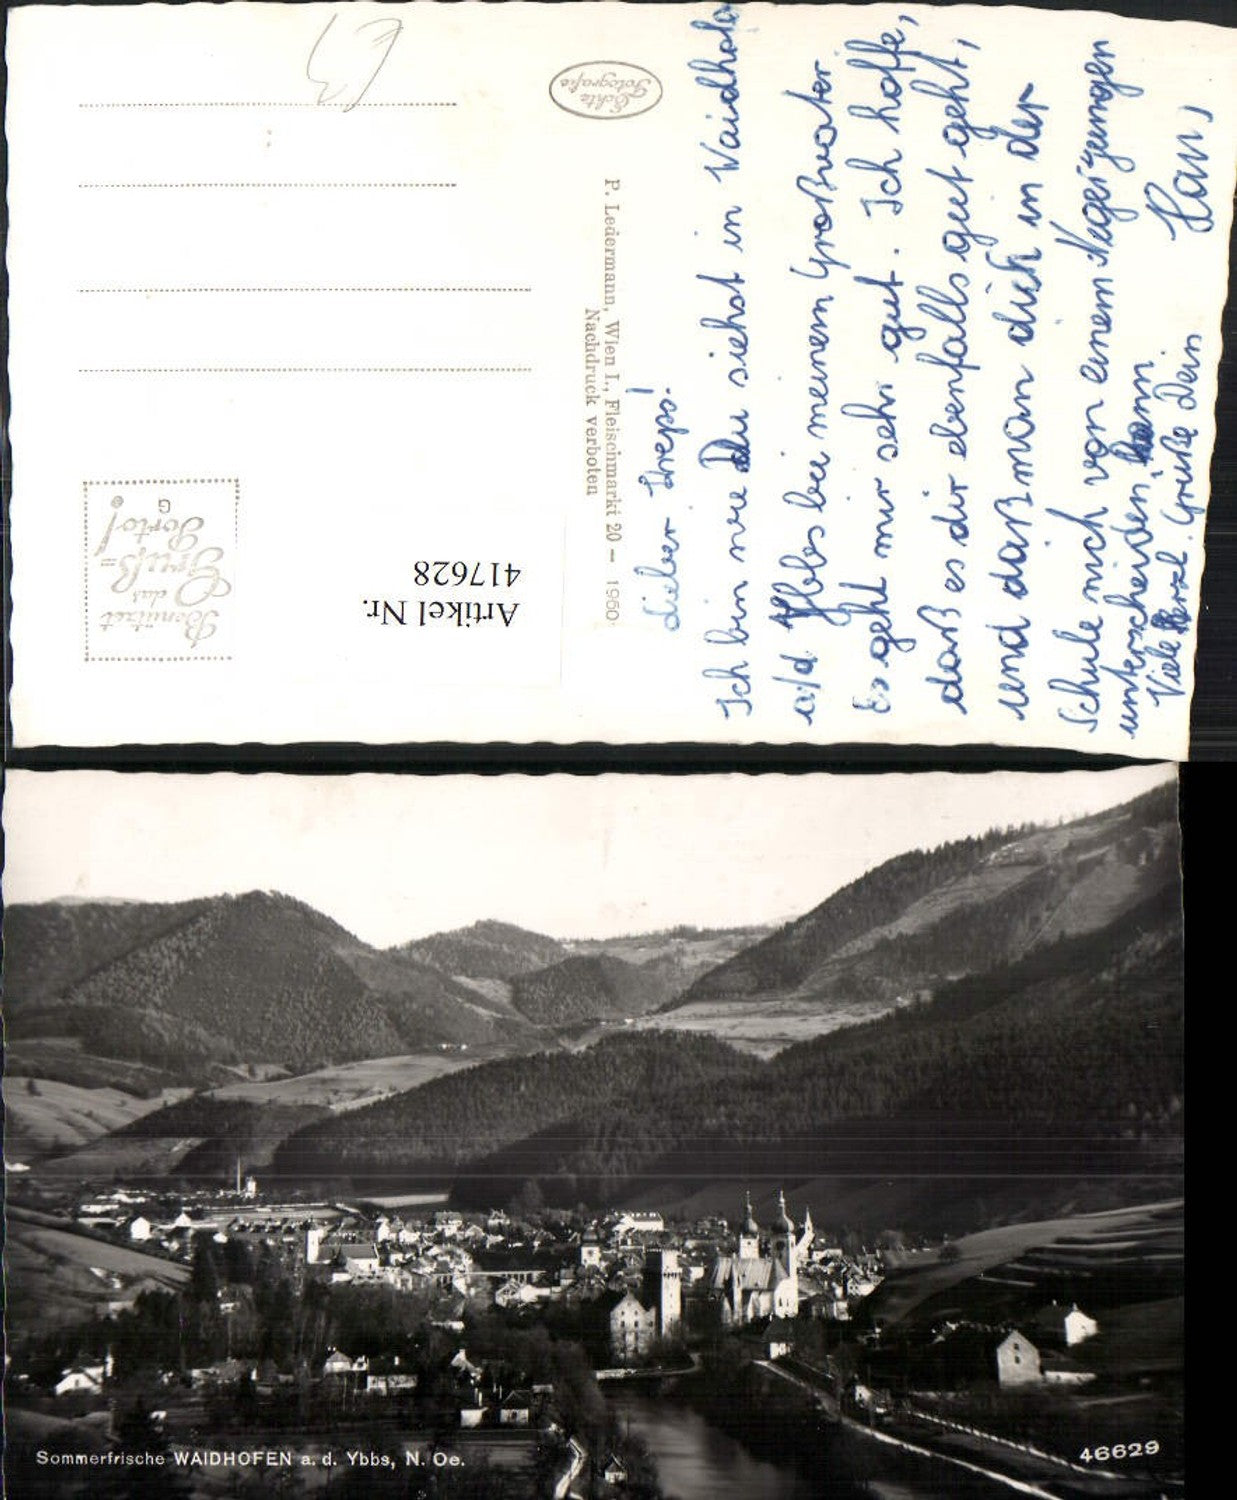 Echte
Fotografie
P. Ledermann, Wien I., Fleischmarkt 20 — 1960
Nachdruck verboten
Benützet
das
Gruß=
Porto!
G
Artikel Nr.
417628
Lieber Streps!
Ich bin wie Du siehst in Waidhofen
a/d Ybbs bei meinem Großvater.
Es geht mir sehr gut. Ich hoffe,
daß es dir ebenfalls gut geht,
und daß man dich in der
Schule nicht von einem Negerjungen
unterscheiden kann.
Viele herzl. Grüße Dein
Hans
Sommerfrische WAIDHOFEN a. d. Ybbs, N. Oe.
46629